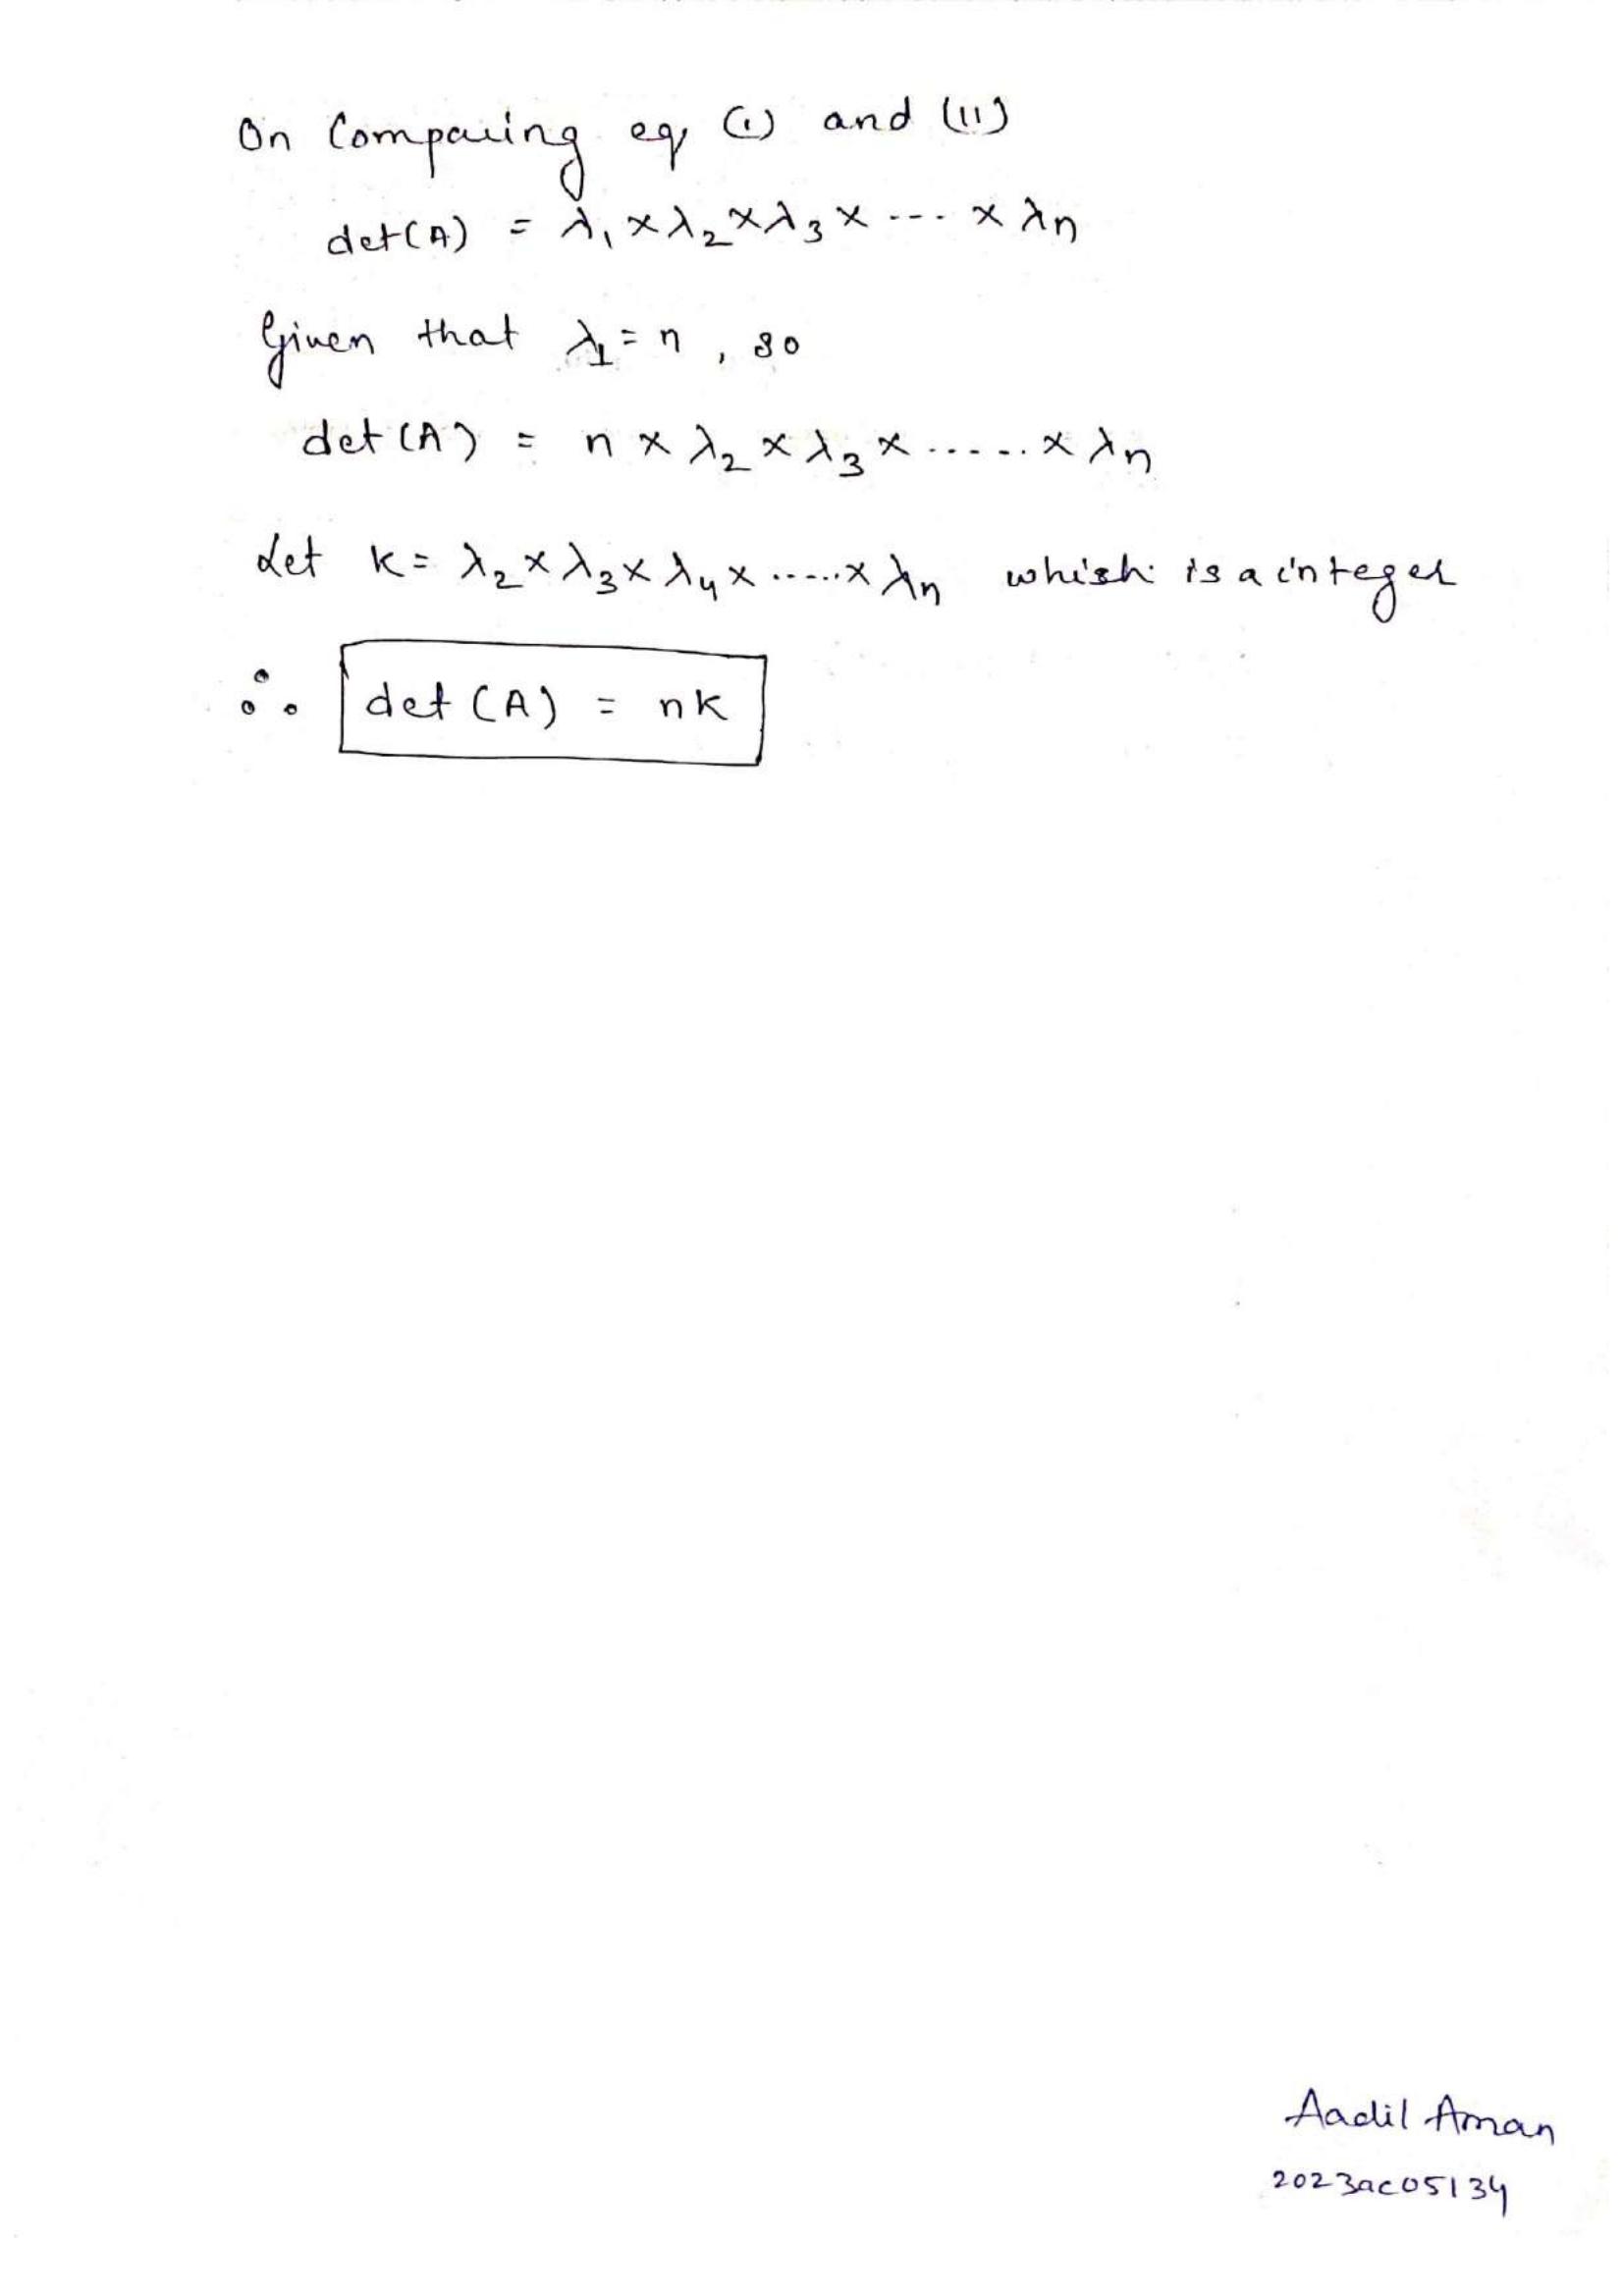 On Comparing eq (i) and (ii)
det(A) = λ₁ × λ₂ × λ₃ × --- × λn
Given that λ₁ = n , so
det(A) = n × λ₂ × λ₃ × ...... × λn
Let k = λ₂ × λ₃ × λ₄ × ..... × λn which is a integer
∴ det(A) = nk
Aadil Aman
2023ac05134